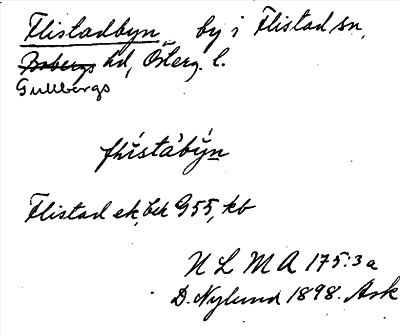 Flistadbyn by i Flistad sn,
Bobergs hd, Österg. l.
Gullbergs
flistabyn
Flistad ek. bl. G55, kb
N L M A 175:3a
D. Nylund 1898. Ask